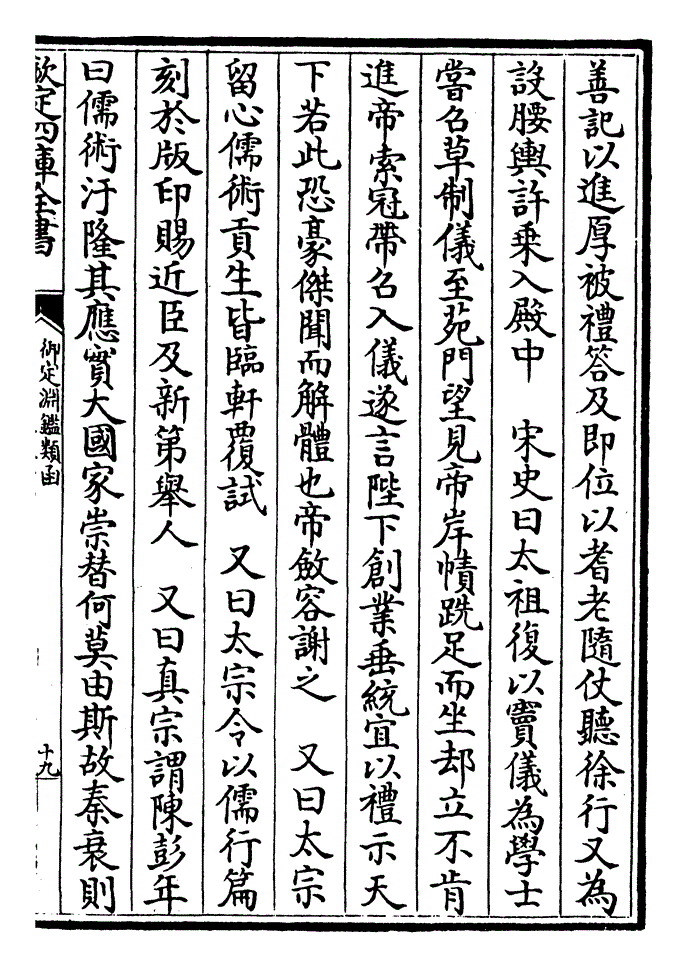 善記以進厚被禮答及即位以耆老隨仗聽徐行又為
設腰輿許乗入殿中　宋史曰太祖復以竇儀為學士
嘗召草制儀至苑門望見帝岸幘跣足而坐却立不肯
進帝索冠帶召入儀遂言陛下創業垂統宜以禮示天
下若此恐豪傑聞而解體也帝斂容謝之　又曰太宗
留心儒術貢生皆臨軒覆試　又曰太宗令以儒行篇
刻於版印賜近臣及新第舉人　又曰真宗謂陳彭年
曰儒術汙隆其應實大國家崇替何莫由斯故秦衰則
欽定四庫全書
御定淵鑑類函
十九